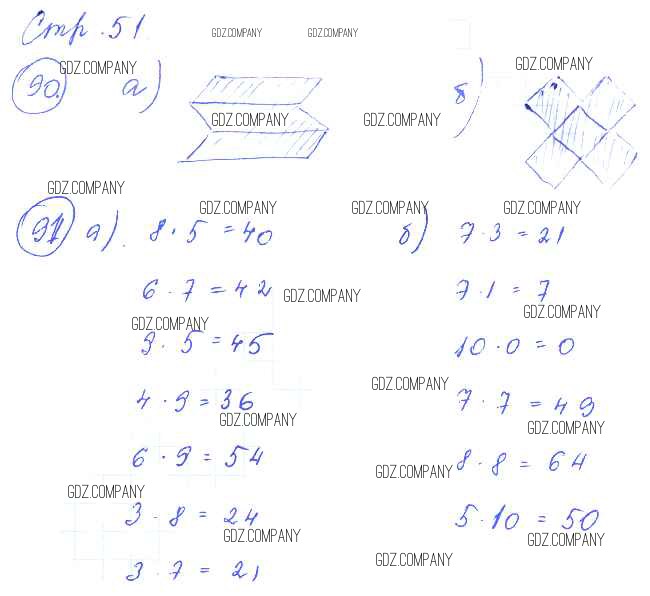 Стр. 51.
GDZ.COMPANY GDZ.COMPANY
GDZ.COMPANY GDZ.COMPANY
90. а) б)
GDZ.COMPANY GDZ.COMPANY
GDZ.COMPANY
GDZ.COMPANY GDZ.COMPANY GDZ.COMPANY
91 а). 8 · 5 = 40 б) 7 · 3 = 21
6 · 7 = 42 GDZ.COMPANY 7 · 1 = 7
GDZ.COMPANY GDZ.COMPANY
9 · 5 = 45 10 · 0 = 0
GDZ.COMPANY
4 · 9 = 36 7 · 7 = 49
GDZ.COMPANY GDZ.COMPANY
6 · 9 = 54 GDZ.COMPANY 8 · 8 = 64
GDZ.COMPANY
3 · 8 = 24 5 · 10 = 50
GDZ.COMPANY GDZ.COMPANY
GDZ.COMPANY
3 · 7 = 21